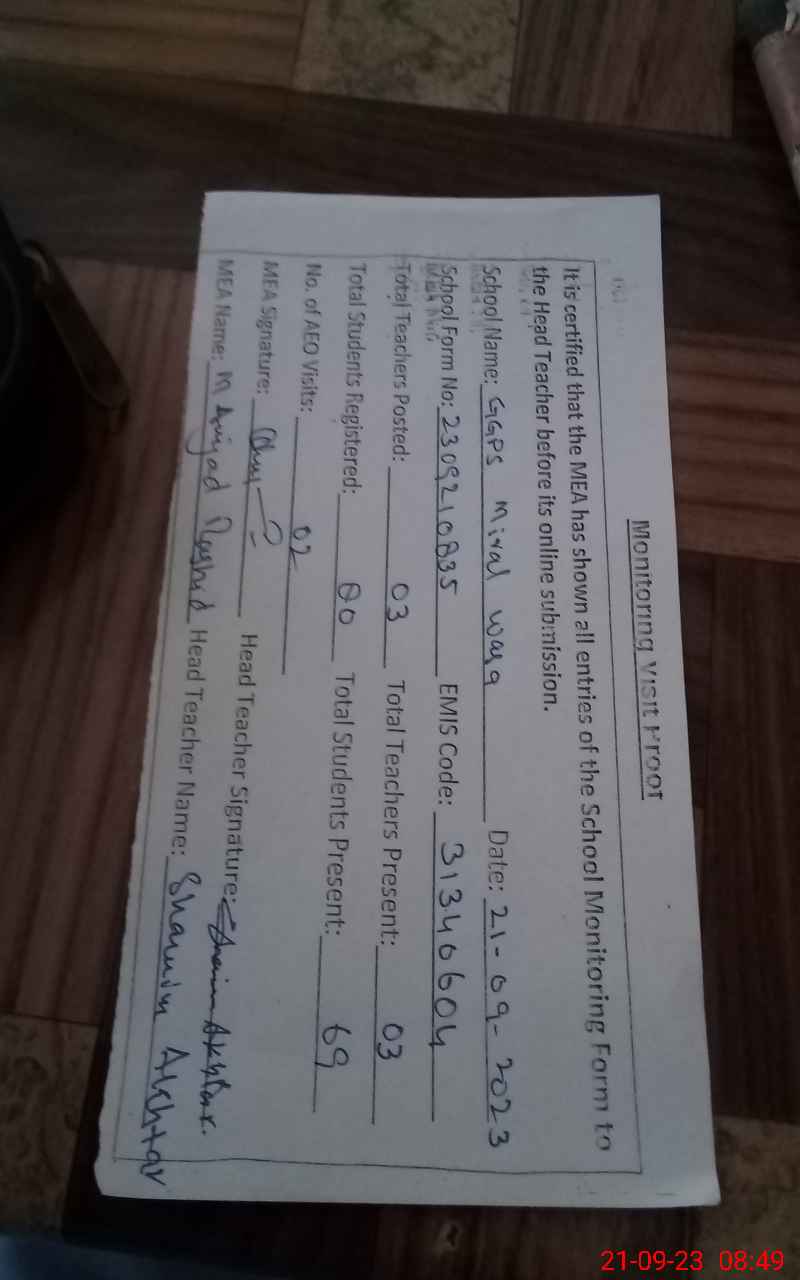 Monitoring Visit Proof
It is certified that the MEA has shown all entries of the School Monitoring Form to
the Head Teacher before its online submission.
School Name: GGPS Miral Wala Date: 21-09-2023
School Form No: 2309210835 EMIS Code: 31340604
Total Teachers Posted: 03 Total Teachers Present: 03
Total Students Registered: 80 Total Students Present: 69
No. of AEO Visits: 02
MEA Signature: Head Teacher Signature: Akhtar.
MEA Name: M Amjad Rashid Head Teacher Name: Shamim Akhtar
21-09-23 08:49